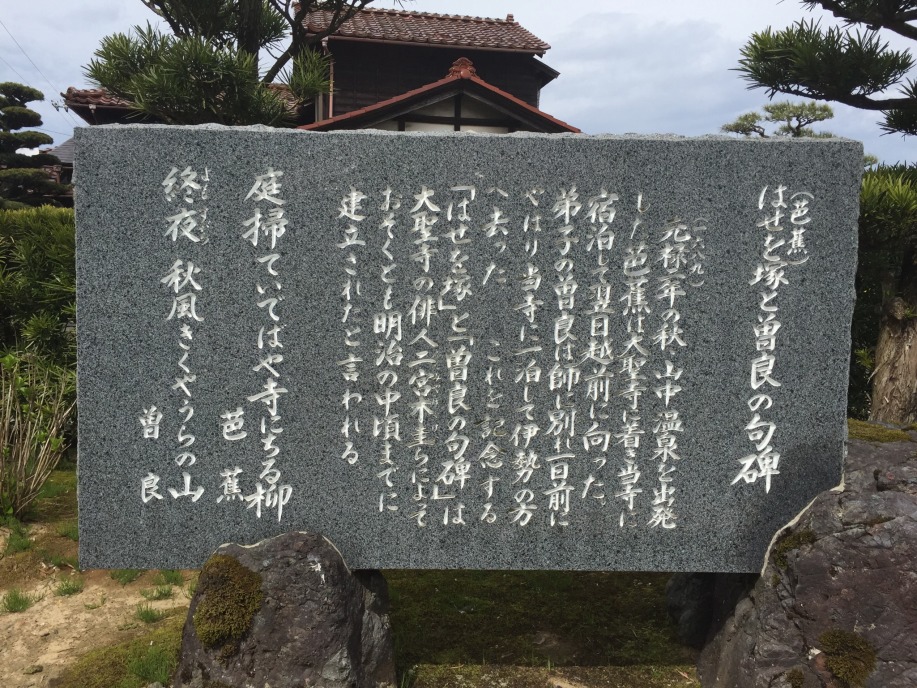 (芭蕉)
はせを塚と曽良の句碑
(一六八九)
元禄二年の秋、山中温泉を出発
した芭蕉は大聖寺に着き当寺に
宿泊して翌日越前に向った
弟子の曽良は師に別れ一日前に
やはり当寺に一泊して伊勢の方
へ去った これを記念する
「はせを塚」と「曽良の句碑」は
大聖寺の俳人二宮木圭らによって
おそくとも明治の中頃までに
建立されたと言われる
庭掃ていでばや寺にちる柳
芭蕉
終夜秋風きくやうらの山
曽良